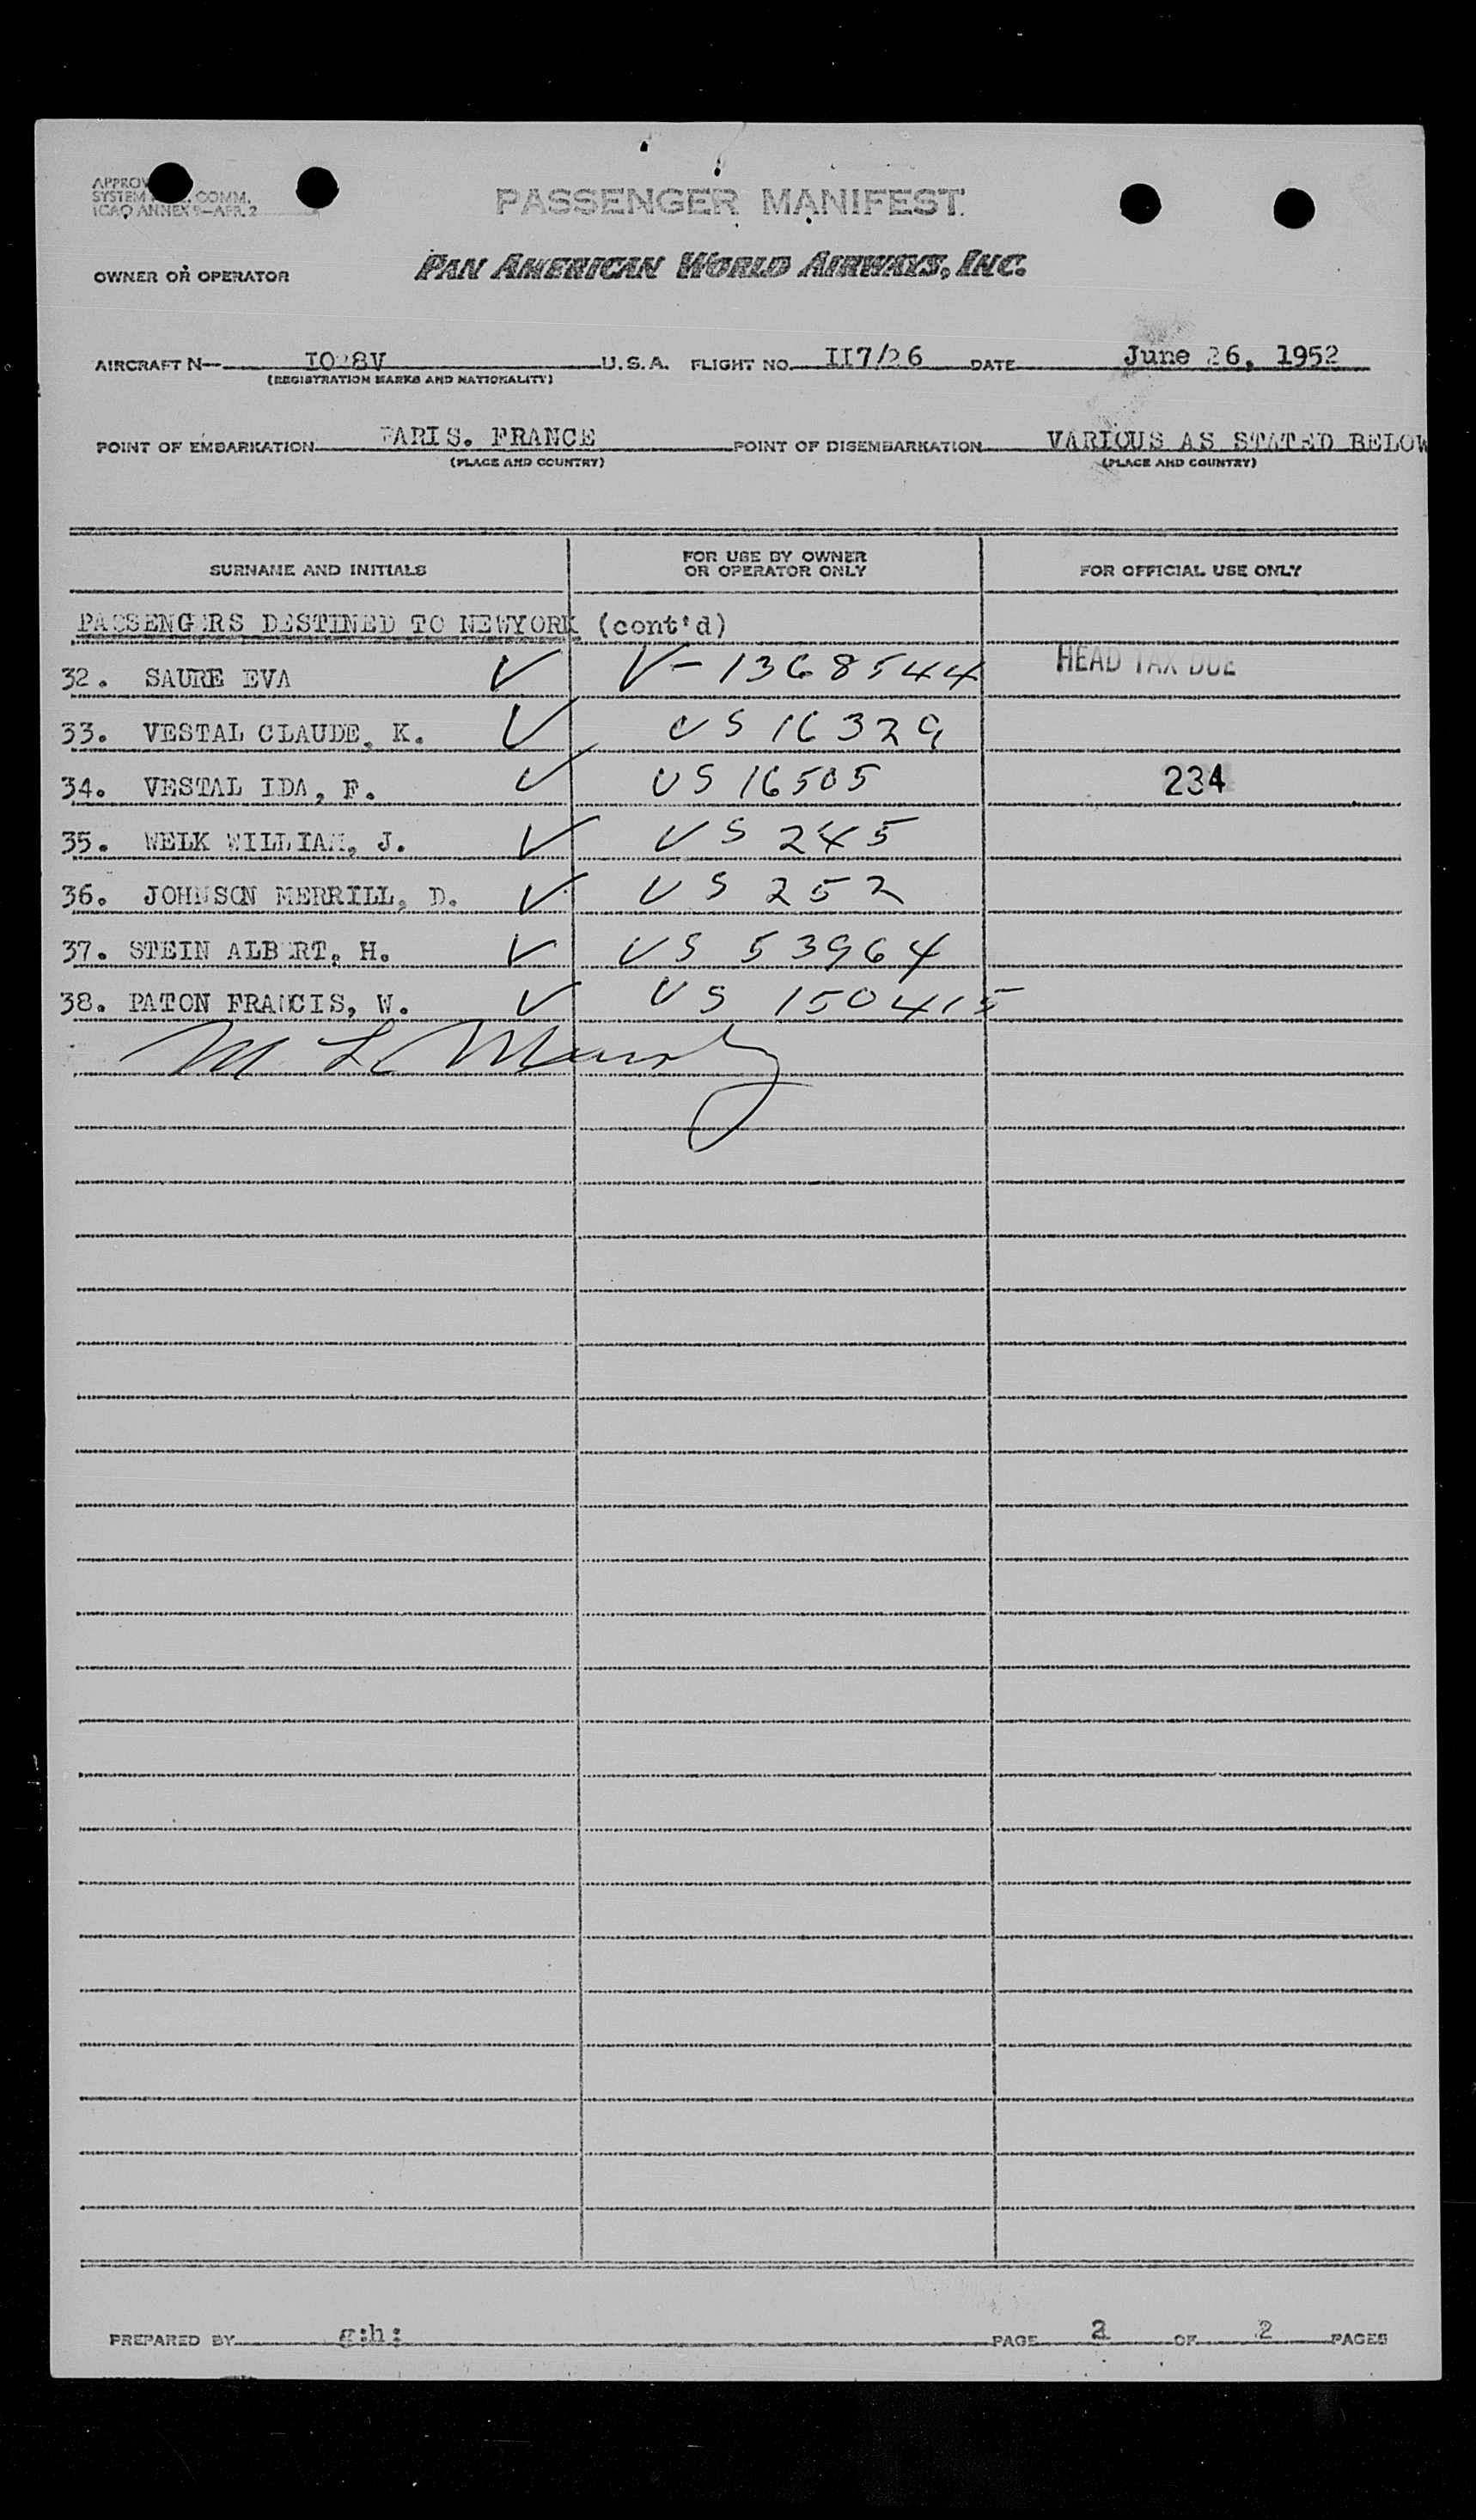 PASSENGER MANIFEST
ICAO ANNEX 9—APR. 2
OWNER OR OPERATOR PAN AMERICAN WORLD AIRWAYS, INC.
AIRCRAFT N— U.S.A. FLIGHT NO. II7/26 DATE June 26, 1952
(REGISTRATION MARKS AND NATIONALITY)
POINT OF EMBARKATION PARIS. FRANCE POINT OF DISEMBARKATION VARIOUS AS STATED BELOW
(PLACE AND COUNTRY) (PLACE AND COUNTRY)
SURNAME AND INITIALS FOR USE BY OWNER OR OPERATOR ONLY FOR OFFICIAL USE ONLY
PASSENGERS DESTINED TO NEWYORK (cont'd)
32. SAURE EVA V V-1368544 HEAD TAX DUE
33. VESTAL CLAUDE, K. V US 16329
34. VESTAL IDA, F. V US 16505 234
35. WELK WILLIAM, J. V US 245
36. JOHNSON MERRILL, D. V US 252
37. STEIN ALBERT, H. V US 53964
38. PATON FRANCIS, W. V US 150415
PREPARED BY g:h: PAGE 2 OF 2 PAGES